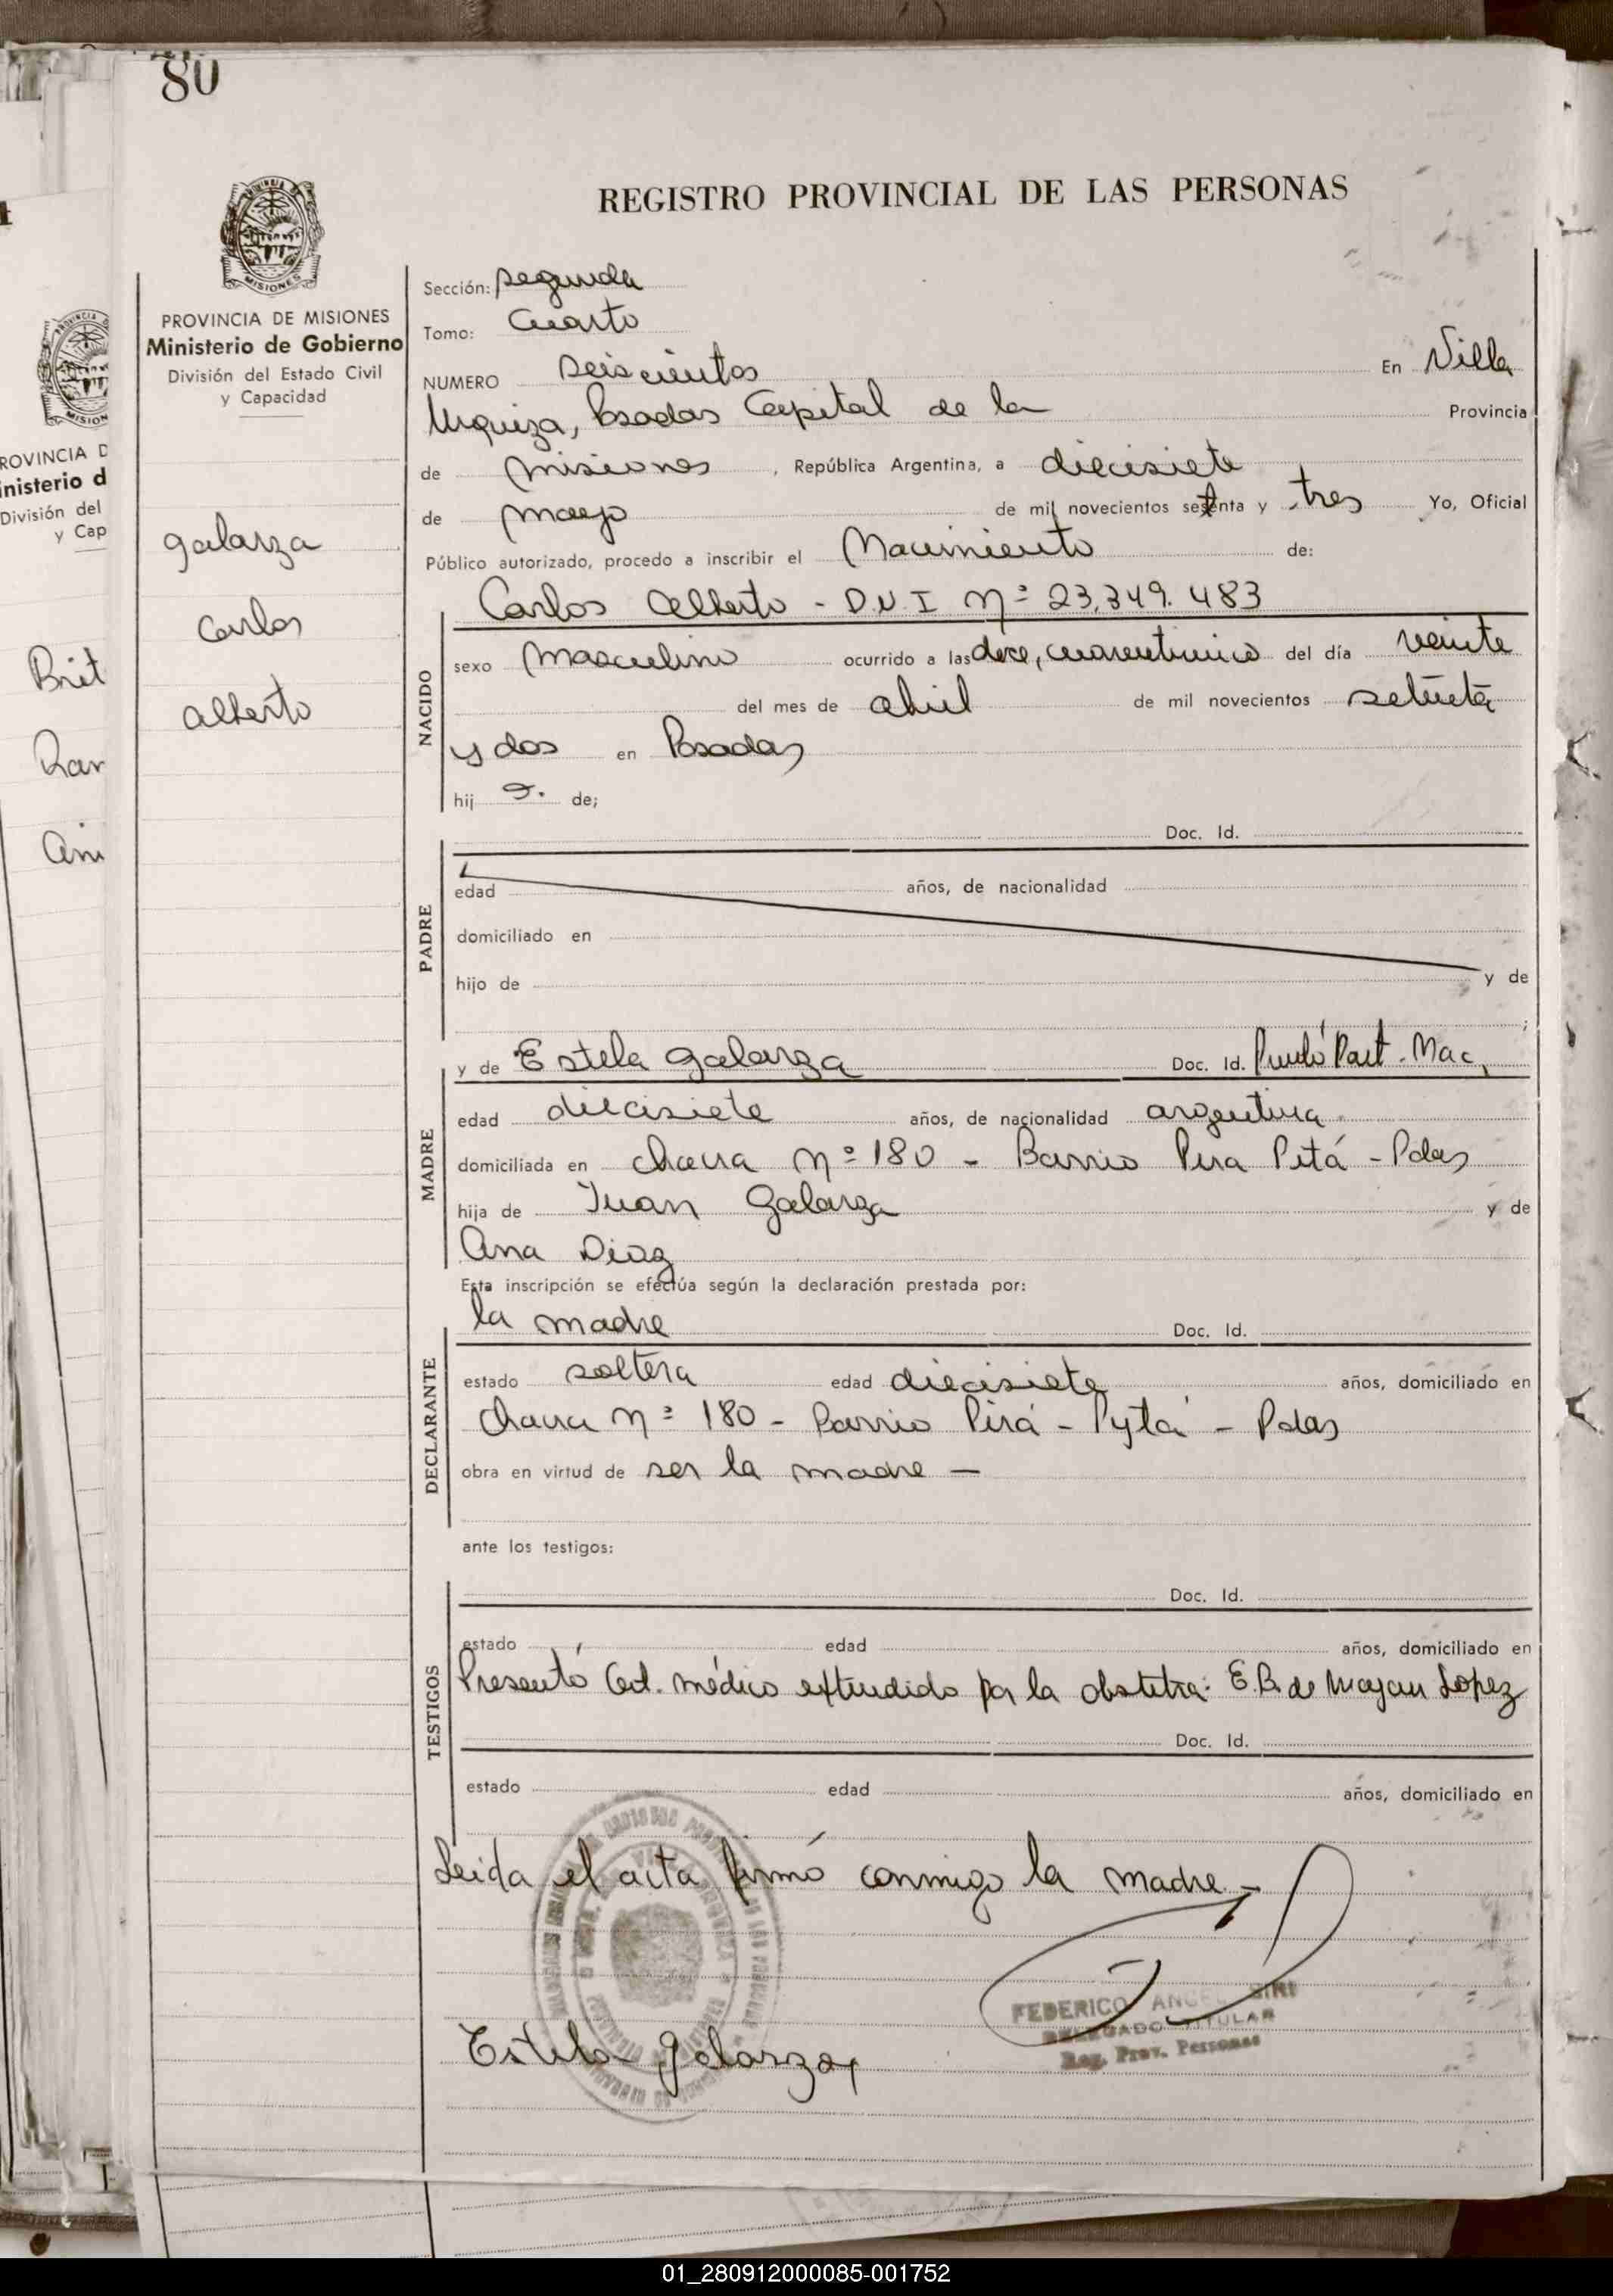 80
REGISTRO PROVINCIAL DE LAS PERSONAS
PROVINCIA DE MISIONES
Ministerio de Gobierno
División del Estado Civil
y Capacidad
galarza
Carlos
alberto
Sección: segunda
Tomo: Cuarto
NUMERO seiscientos En Villa
Urquiza, Posadas Capital de la Provincia
de misiones, República Argentina, a diecisiete
de mayo de mil novecientos setenta y tres Yo, Oficial
Público autorizado, procedo a inscribir el Nacimiento de:
Carlos Alberto - D.N.I Nº 23.349.483
NACIDO
sexo masculino ocurrido a las doce, del día veinte
del mes de abril de mil novecientos setenta
y dos en Posadas
hij o. de;
Doc. Id.
PADRE
edad años, de nacionalidad
domiciliado en
hijo de y de
;
MADRE
y de Estela galarza Doc. Id. Part. Mac,
edad diecisiete años, de nacionalidad argentina
domiciliada en chacra Nº 180 - Barrio Pira Pitá - Pdas
hija de Juan Galarza y de
Ana Diaz
Esta inscripción se efectúa según la declaración prestada por:
DECLARANTE
la madre Doc. Id.
estado soltera edad diecisiete años, domiciliado en
Chacra Nº 180 - Barrio Pirá - Pytá - Pdas
obra en virtud de ser la madre —
ante los testigos:
TESTIGOS
Doc. Id.
estado edad años, domiciliado en
Presentó Cert. médico extendido por la obstetra: E.B. de Lopez
Doc. Id.
estado edad años, domiciliado en
Leida el acta firmó conmigo la madre -
FEDERICO ANGEL
DELEGADO TITULAR
Reg. Prov. Personas
Estela galarza
ROVINCIA D
inisterio d
División del
y Cap
Brit
Ram
01_280912000085-001752